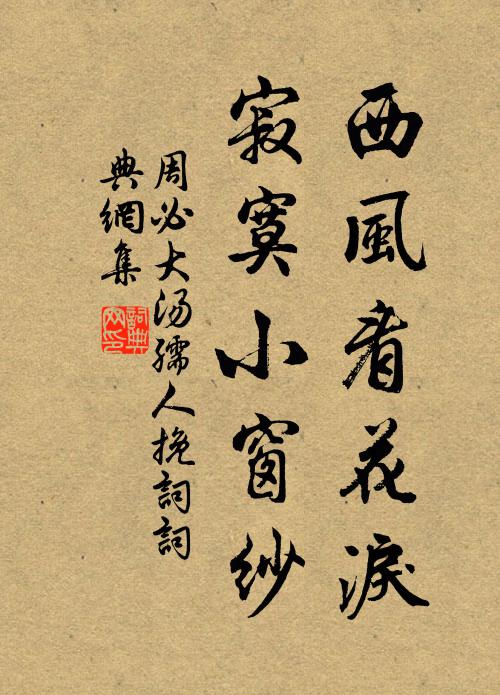 西風看花淚
寂寞小窗紗
周必大湯孺人挽詞詞
典網集
詞典網印